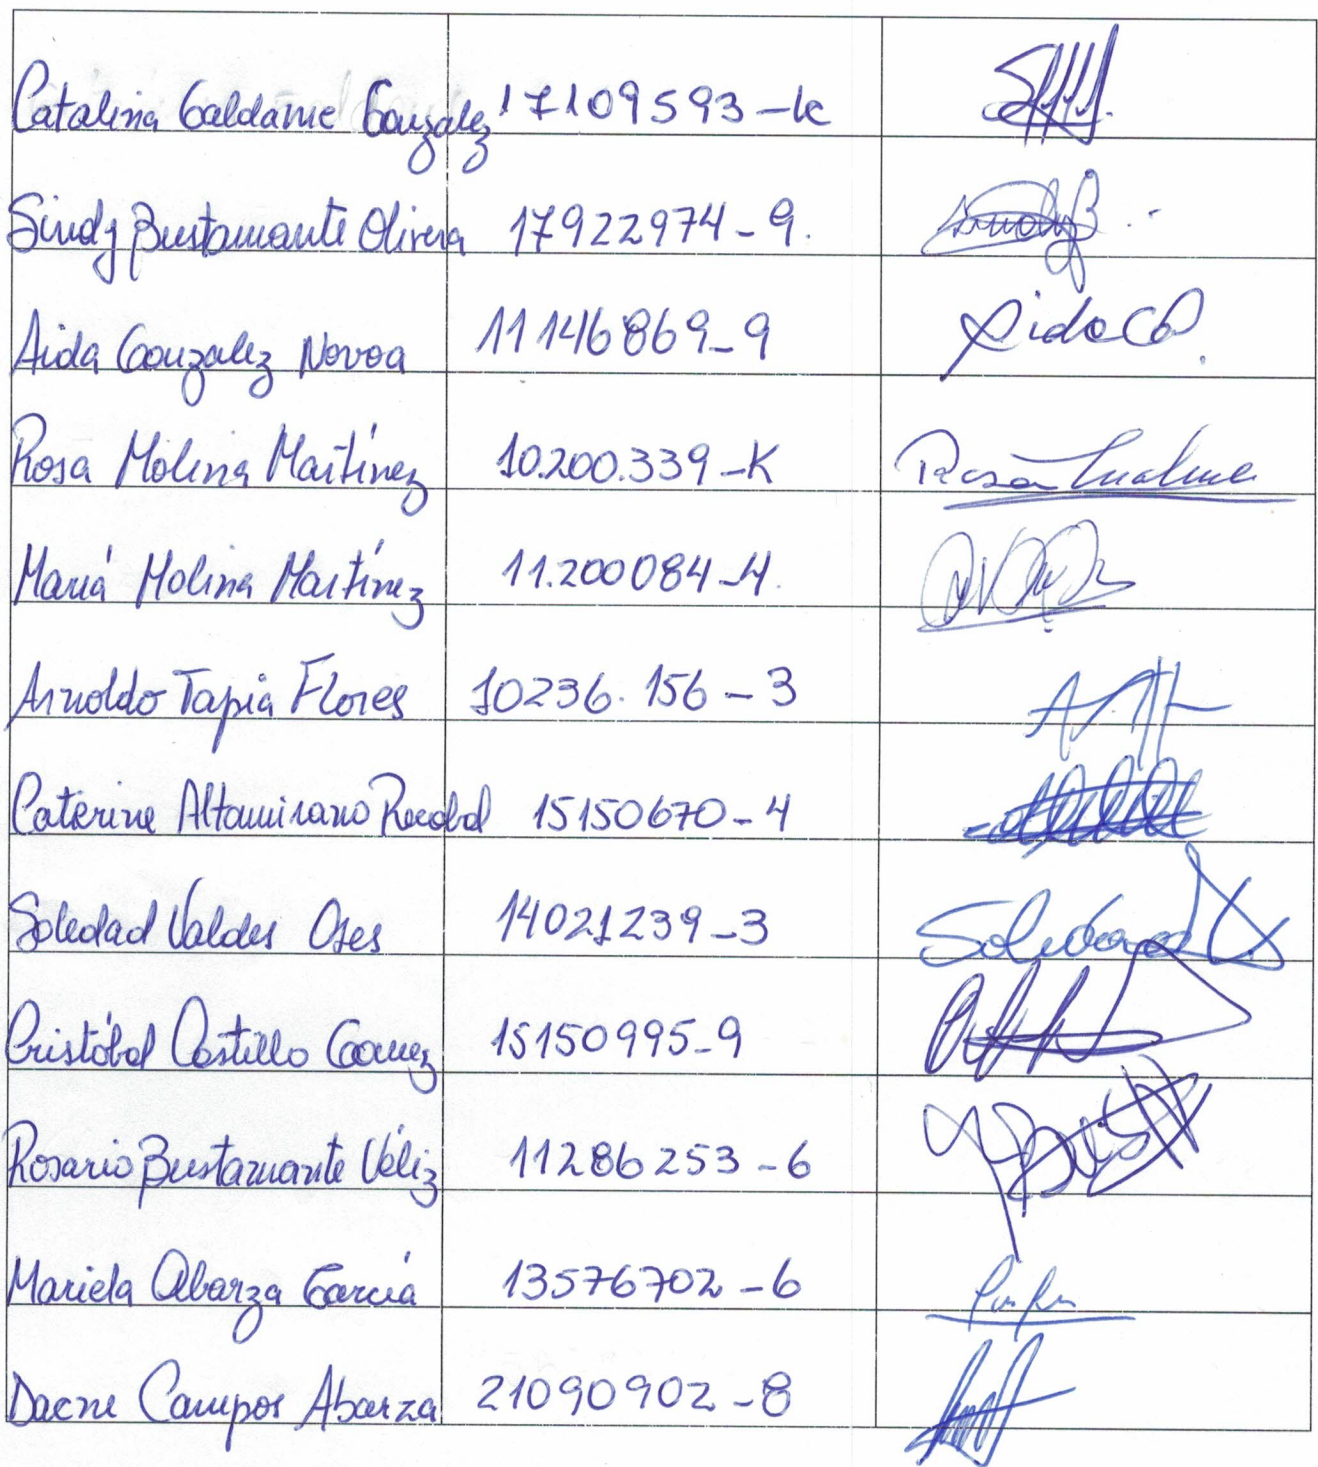 Catalina Galdame Gonzalez 17109593-k
Sindy Bustamante Olivera 17922974-9.
Aida Gonzalez Novoa 11146869-9
Rosa Molina Martínez 10.200.339-K Rosa
Mariá Molina Martínez 11.200084-4.
Arnoldo Tapia Flores 10236.156-3
Caterine Altamirano Recabal 15150670-4
Soledad Valdes Oses 14021239-3 Soledad
Cristóbal Castillo Gomez 15150995-9
Rosario Bustamante Véliz 11286253-6
Mariela Abarza Garciá 13576702-6
Dacne Campos Abarza 21090902-8